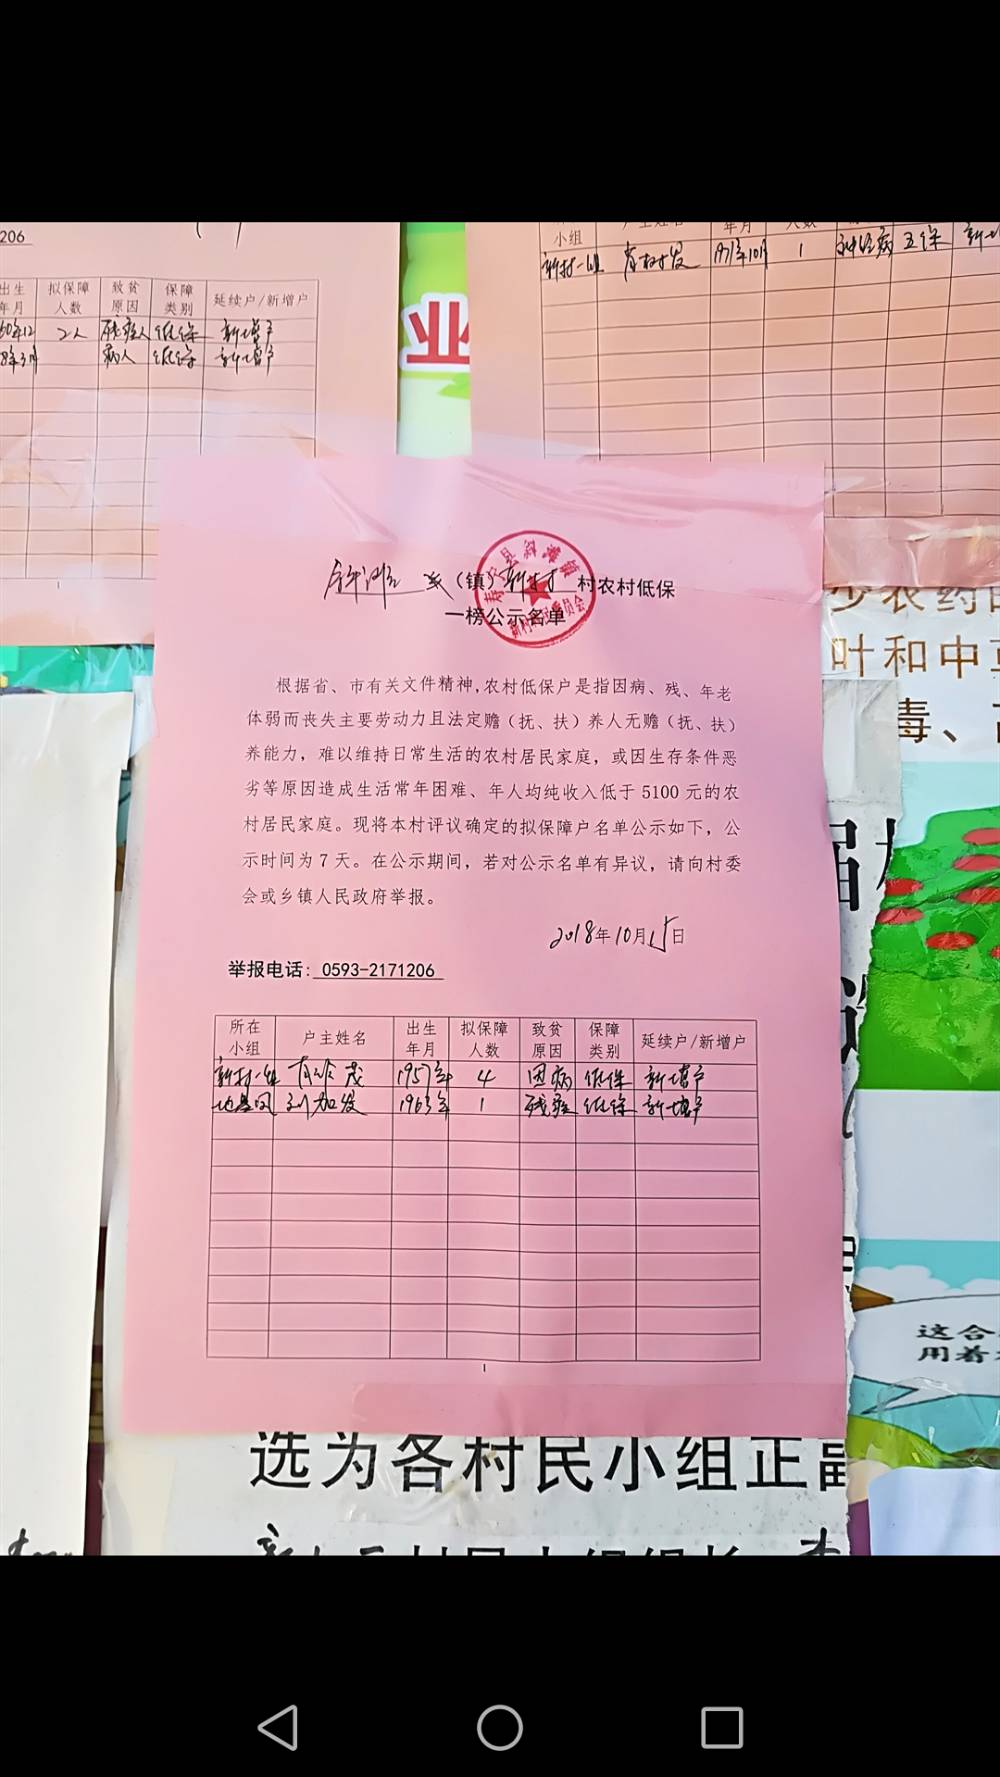 206
出生 拟保障 致贫 保障 延续户/新增户
年月 人数 原因 类别
2人 残疾人 低保 新增户
病人 低保 新增户
业
小组 户主姓名 年月 人数
新村一组 1971年10月 1 神经病 五保
寿宁县斜滩镇
斜滩 乡(镇)新村 村农村低保
一榜公示名单
根据省、市有关文件精神,农村低保户是指因病、残、年老
体弱而丧失主要劳动力且法定赡(抚、扶)养人无赡(抚、扶)
养能力,难以维持日常生活的农村居民家庭,或因生存条件恶
劣等原因造成生活常年困难、年人均纯收入低于 5100 元的农
村居民家庭。现将本村评议确定的拟保障户名单公示如下,公
示时间为 7 天。在公示期间,若对公示名单有异议,请向村委
会或乡镇人民政府举报。
2018年10月15日
举报电话: 0593-2171206
所在 户主姓名 出生 拟保障 致贫 保障 延续户/新增户
小组 年月 人数 原因 类别
1957年 4 因病 低保 新增户
刘加发 1963年 1 残疾 低保 新增户
1
少农药
叶和中
毒、
届
这合
用着
选为各村民小组正副